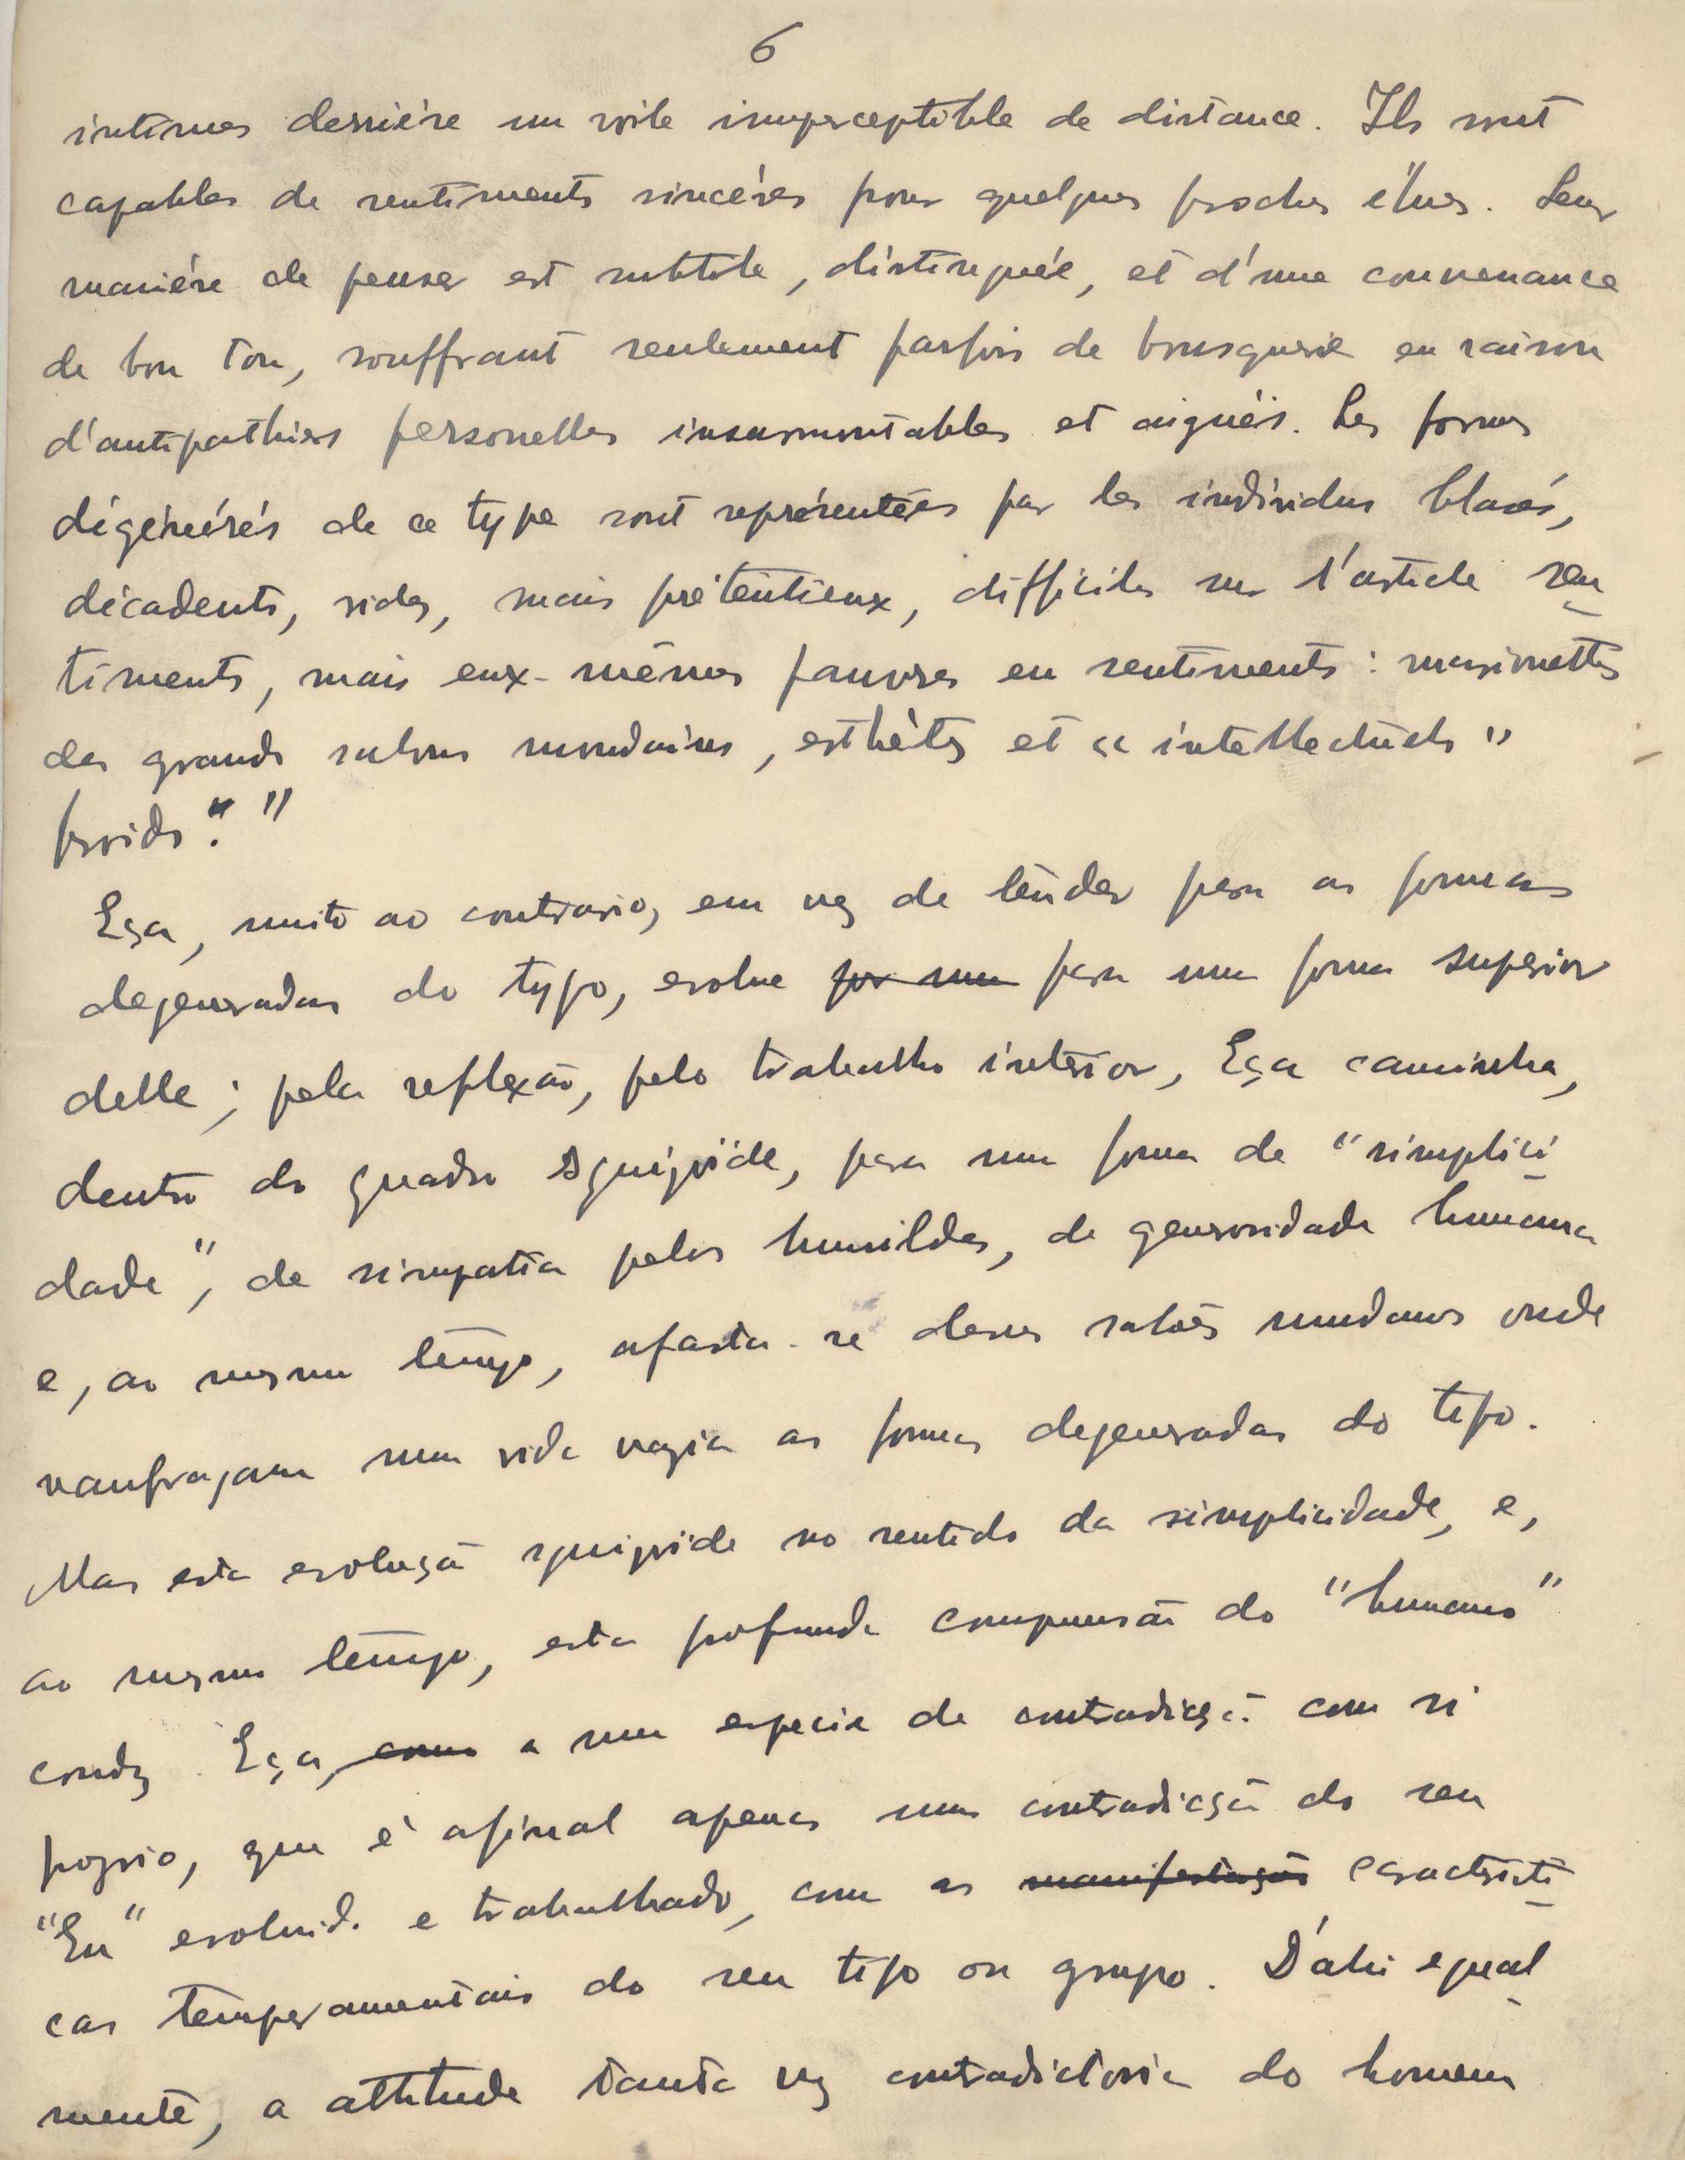 6
intimes derrière un voile imperceptible de distance. Ils sont
capables de sentiments sincères pour quelques proches élus. Leur
manière de penser est subtile, distinguée, et d'une convenance
de bon ton, souffrant seulement parfois de brusquerie en raison
d'antipathies personelles insurmontables et aiguës. Les formes
dégénérés de ce type sont représentées par les individus blasés,
décadents, vides, mais prétentieux, difficiles sur l'article sen
timents, mais eux-mêmes pauvres en sentiments: marionettes
des grands salons mondains, esthètes et "intellectuels"
froids". "
Eça, muito ao contrario, em vez de tender para as formas
degeneradas do typo, evolue por uma para uma forma superior
delle; pela reflexão, pelo trabalho interior, Eça caminha,
dentro do quadro squizóide, para uma forma de "simplici
dade", de simpatia pelos humildes, de generosidade humana
e, ao mesmo tempo, afasta-se desses salões mundanos onde
naufragam numa vida vazia as formas degeneradas do tipo.
Mas esta evolução squizóide no sentido da simplicidade, e,
ao mesmo tempo, esta profunda compreensão do "humano"
conduz Eça, como a uma especie de contradicção com si
proprio, que é afinal apenas uma contradicção do seu
"Eu" evoluido e trabalhado, com as manifestações caracteristi
cas temperamentais do seu tipo ou grupo. D'ahi egual
mente, a attitude tanta vez contradictoria do homem